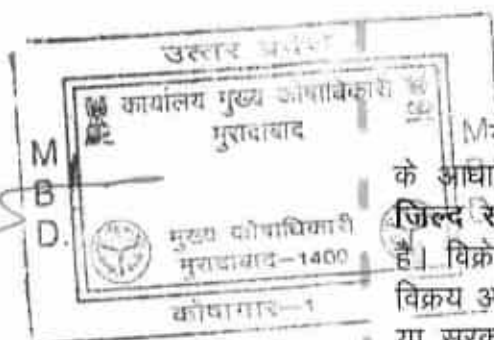 उत्तर प्रदेश
कार्यालय मुख्य कोषाधिकारी
मुरादाबाद
M
B
D.
मुख्य कोषाधिकारी
मुरादाबाद-1400
कोषागार-1
के आधा
जिल्द स
है। विक्रे
विक्रय अ
या सरक